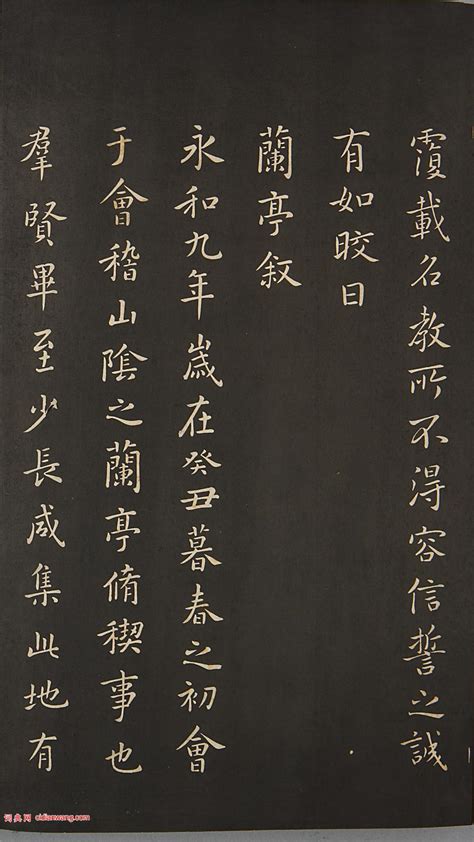 覆載名教所不得容信誓之誠
有如皎日
蘭亭敘
永和九年嵗在癸丑暮春之初會
于會稽山陰之蘭亭脩稧事也
羣賢畢至少長咸集此地有
词典网 cidianwang.com